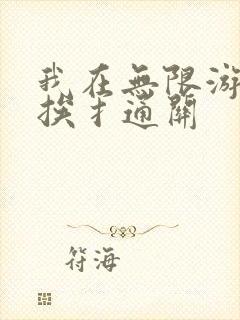 我在無限游
挨扌通關
符海